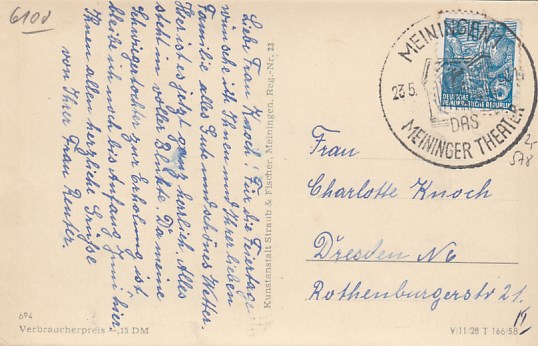 6100
Liebe Frau Knoch! Für die Feiertage
wünsche ich Ihnen und Ihrer lieben
Familie alles Gute und schönes Wetter.
Hier ist es jetzt ganz herrlich. Alles
steht in voller Blüte. Da meine
Schwiegertochter zur Erholung ist
bleibe ich noch bis Anfang Juni hier.
Ihnen allen herzliche Grüße
von Ihrer Frau Reuter.
694
Verbraucherpreis -,15 DM
Kunstanstalt Straub & Fischer, Meiningen, Reg.-Nr. 23
MEININGEN
23.5.
DAS
MEININGER THEATER
DEUTSCHE
DEMOKRATISCHE REPUBLIK
Frau
Charlotte Knoch
Dresden N6
Rothenburgerstr 21.
V/11/28 T 166/58